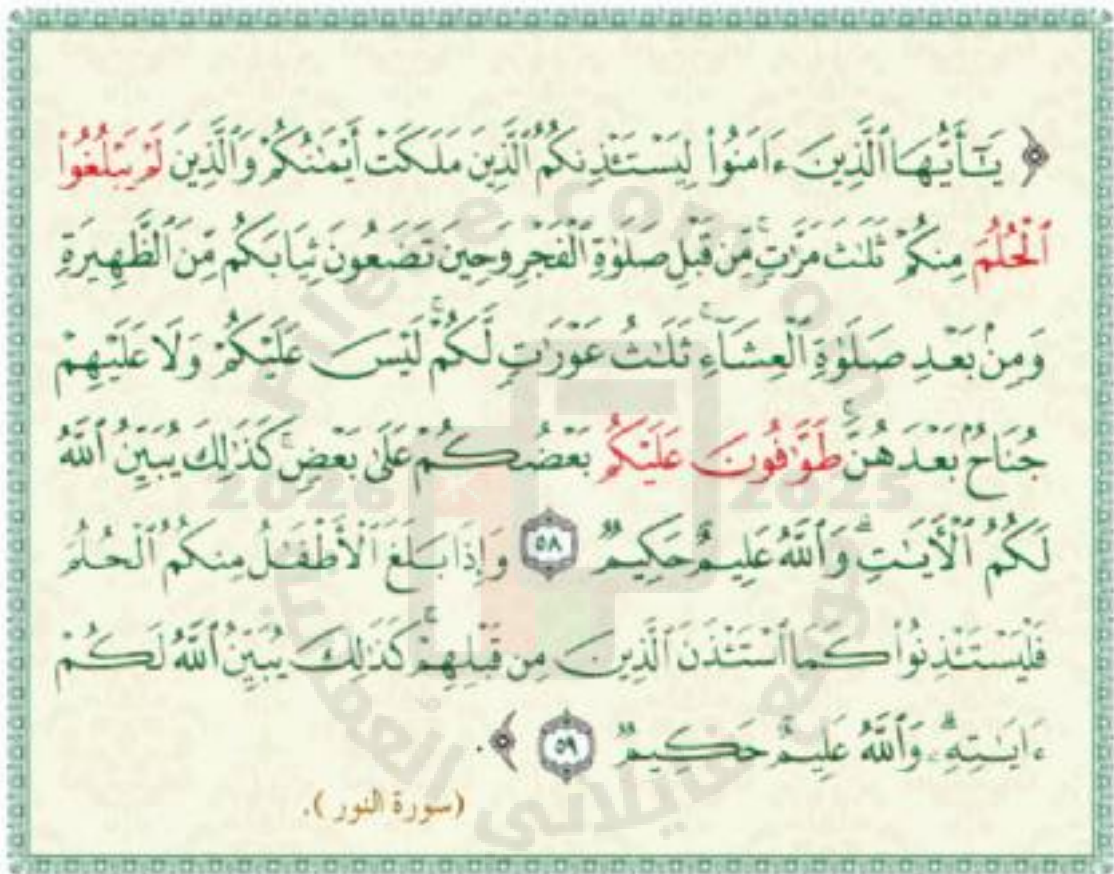 ﴿ يَـٰٓأَيُّهَا ٱلَّذِينَ ءَامَنُوا۟ لِيَسْتَـْٔذِنكُمُ ٱلَّذِينَ مَلَكَتْ أَيْمَـٰنُكُمْ وَٱلَّذِينَ لَمْ يَبْلُغُوا۟
ٱلْحُلُمَ مِنكُمْ ثَلَـٰثَ مَرَّٰتٍ ۚ مِّن قَبْلِ صَلَوٰةِ ٱلْفَجْرِ وَحِينَ تَضَعُونَ ثِيَابَكُم مِّنَ ٱلظَّهِيرَةِ
وَمِنۢ بَعْدِ صَلَوٰةِ ٱلْعِشَآءِ ۚ ثَلَـٰثُ عَوْرَٰتٍ لَّكُمْ ۚ لَيْسَ عَلَيْكُمْ وَلَا عَلَيْهِمْ
جُنَاحٌۢ بَعْدَهُنَّ ۚ طَوَّٰفُونَ عَلَيْكُم بَعْضُكُمْ عَلَىٰ بَعْضٍ ۚ كَذَٰلِكَ يُبَيِّنُ ٱللَّهُ
لَكُمُ ٱلْـَٔايَـٰتِ ۗ وَٱللَّهُ عَلِيمٌ حَكِيمٌ ٥٨ وَإِذَا بَلَغَ ٱلْأَطْفَـٰلُ مِنكُمُ ٱلْحُلُمَ
فَلْيَسْتَـْٔذِنُوا۟ كَمَا ٱسْتَـْٔذَنَ ٱلَّذِينَ مِن قَبْلِهِمْ ۚ كَذَٰلِكَ يُبَيِّنُ ٱللَّهُ لَكُمْ
ءَايَـٰتِهِۦ ۗ وَٱللَّهُ عَلِيمٌ حَكِيمٌ ٥٩ ﴾.
(سورة النور ).
2026 2025
موقع فايلاتي العماني